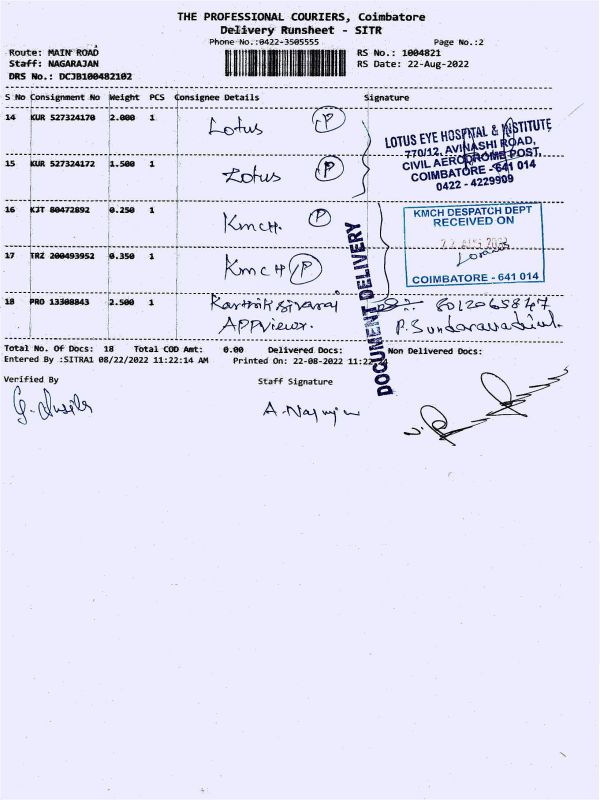 THE PROFESSIONAL COURIERS, Coimbatore
Delivery Runsheet - SITR
Phone No.:0422-3505555 Page No.:2
Route: MAIN ROAD RS No.: 1004821
Staff: NAGARAJAN RS Date: 22-Aug-2022
DRS No.: DCJB100482102
S No Consignment No Weight PCS Consignee Details Signature
14 KUR 527324170 2.000 1 Lotus P
LOTUS EYE HOSPITAL & INSTITUTE
770/12, AVINASHI ROAD,
CIVIL AERODROME POST,
COIMBATORE - 641 014
0422 - 4229909
15 KUR 527324172 1.500 1 Lotus P
16 KJT 80472892 0.250 1 KMCH. P
KMCH DESPATCH DEPT
RECEIVED ON
22 AUG 2022
COIMBATORE - 641 014
17 TRZ 200493952 0.350 1 KMCH P
DOCUMENT DELIVERY
18 PRO 13308843 2.500 1 Karthik sivaraj 8012065847
APPViewx. P. Sundaravadivel.
Total No. Of Docs: 18 Total COD Amt: 0.00 Delivered Docs: Non Delivered Docs:
Entered By :SITRA1 08/22/2022 11:22:14 AM Printed On: 22-08-2022 11:22
Verified By Staff Signature